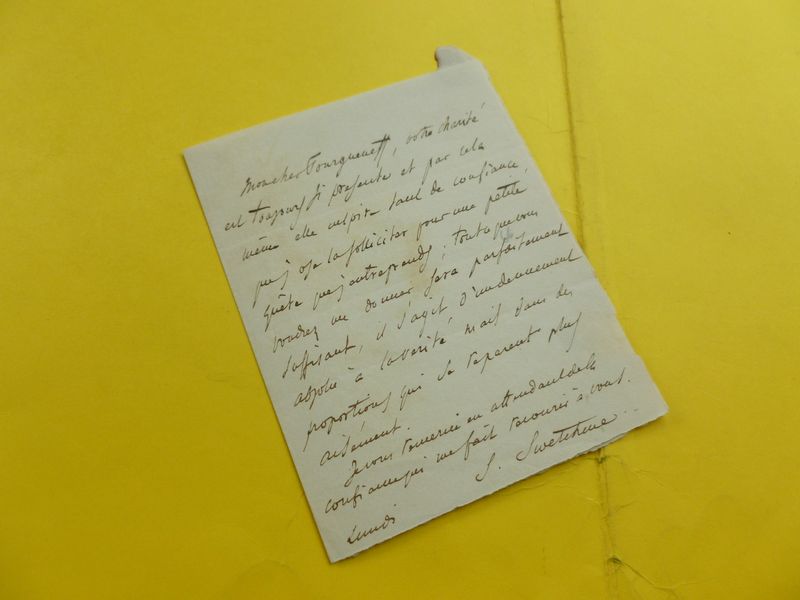 Mon cher Tourgueneff, votre charité
est toujours si presente et par cela
même elle inspire tant de confiance
que j'ose la solliciter pour une petite
quête que j'entreprends; tout ce que vous
voudrez me donner sera parfaitement
suffisant, il s'agit d'un denuement
absolu à la verité mais dans des
proportions qui se reparent plus
aisément.
Je vous remercie en attendant de la
confiance qui me fait recourir à vous.
S. Swetchine
Lundi